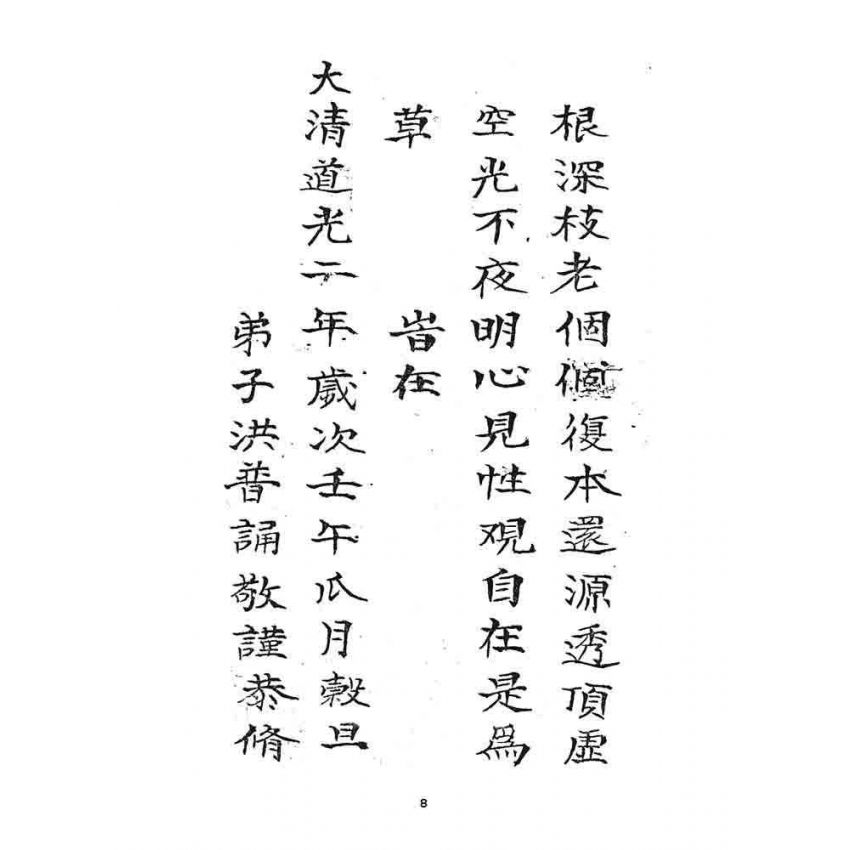 根深枝老個個復本還源透頂虛
空光不夜明心見性观自在是為
草 岩在
大清道光二年歲次壬午瓜月穀旦
弟子洪普誦敬謹恭脩
8